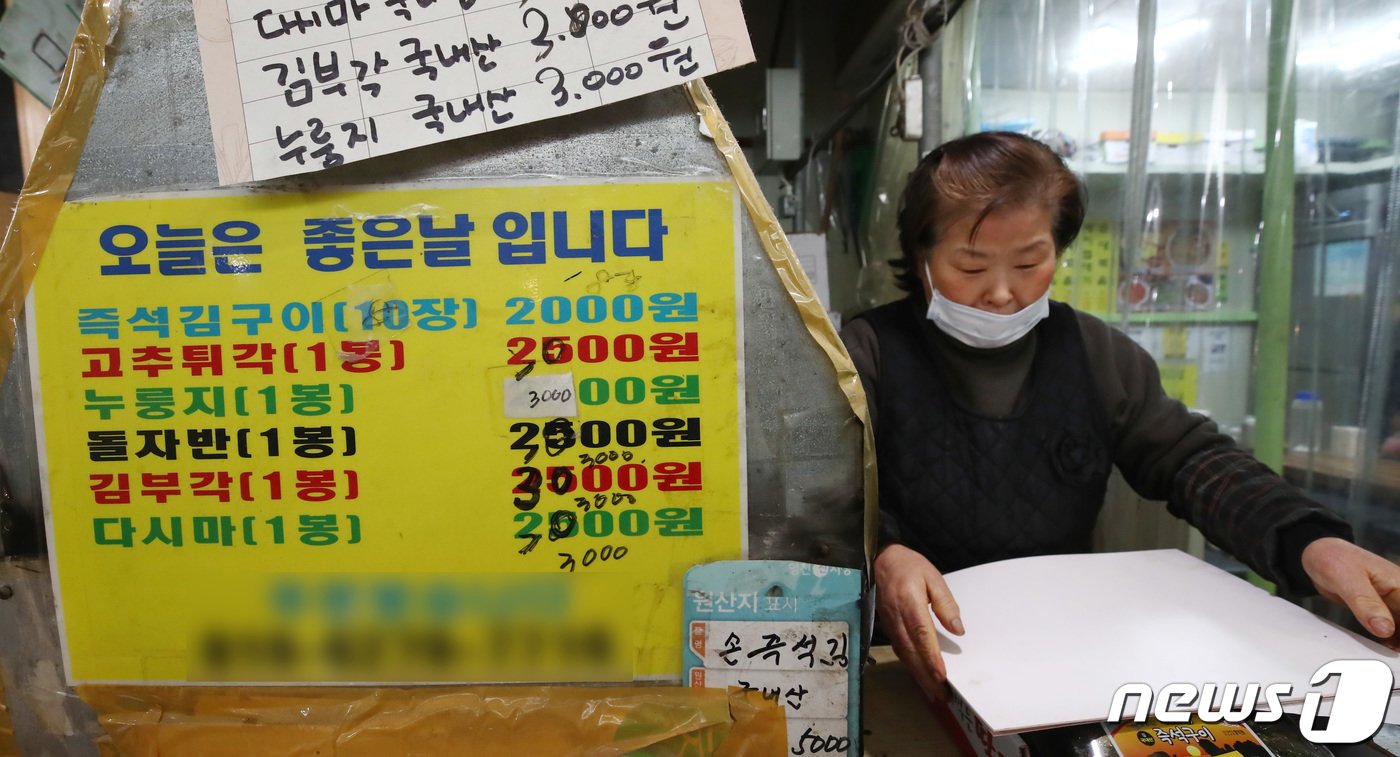 다시마 국내산 3.000원
김부각 국내산 3.000원
누룽지 국내산 3.000원
오늘은 좋은날 입니다
즉석김구이(10장) 2000원
고추튀각(1봉) 2500원
누룽지(1봉) 3000 00원
돌자반(1봉) 2500원
3000
김부각(1봉) 2500원
3000
다시마(1봉) 2500원
3000
원산지 표시
손즉석김
국내산
5000
즉석구이
news1